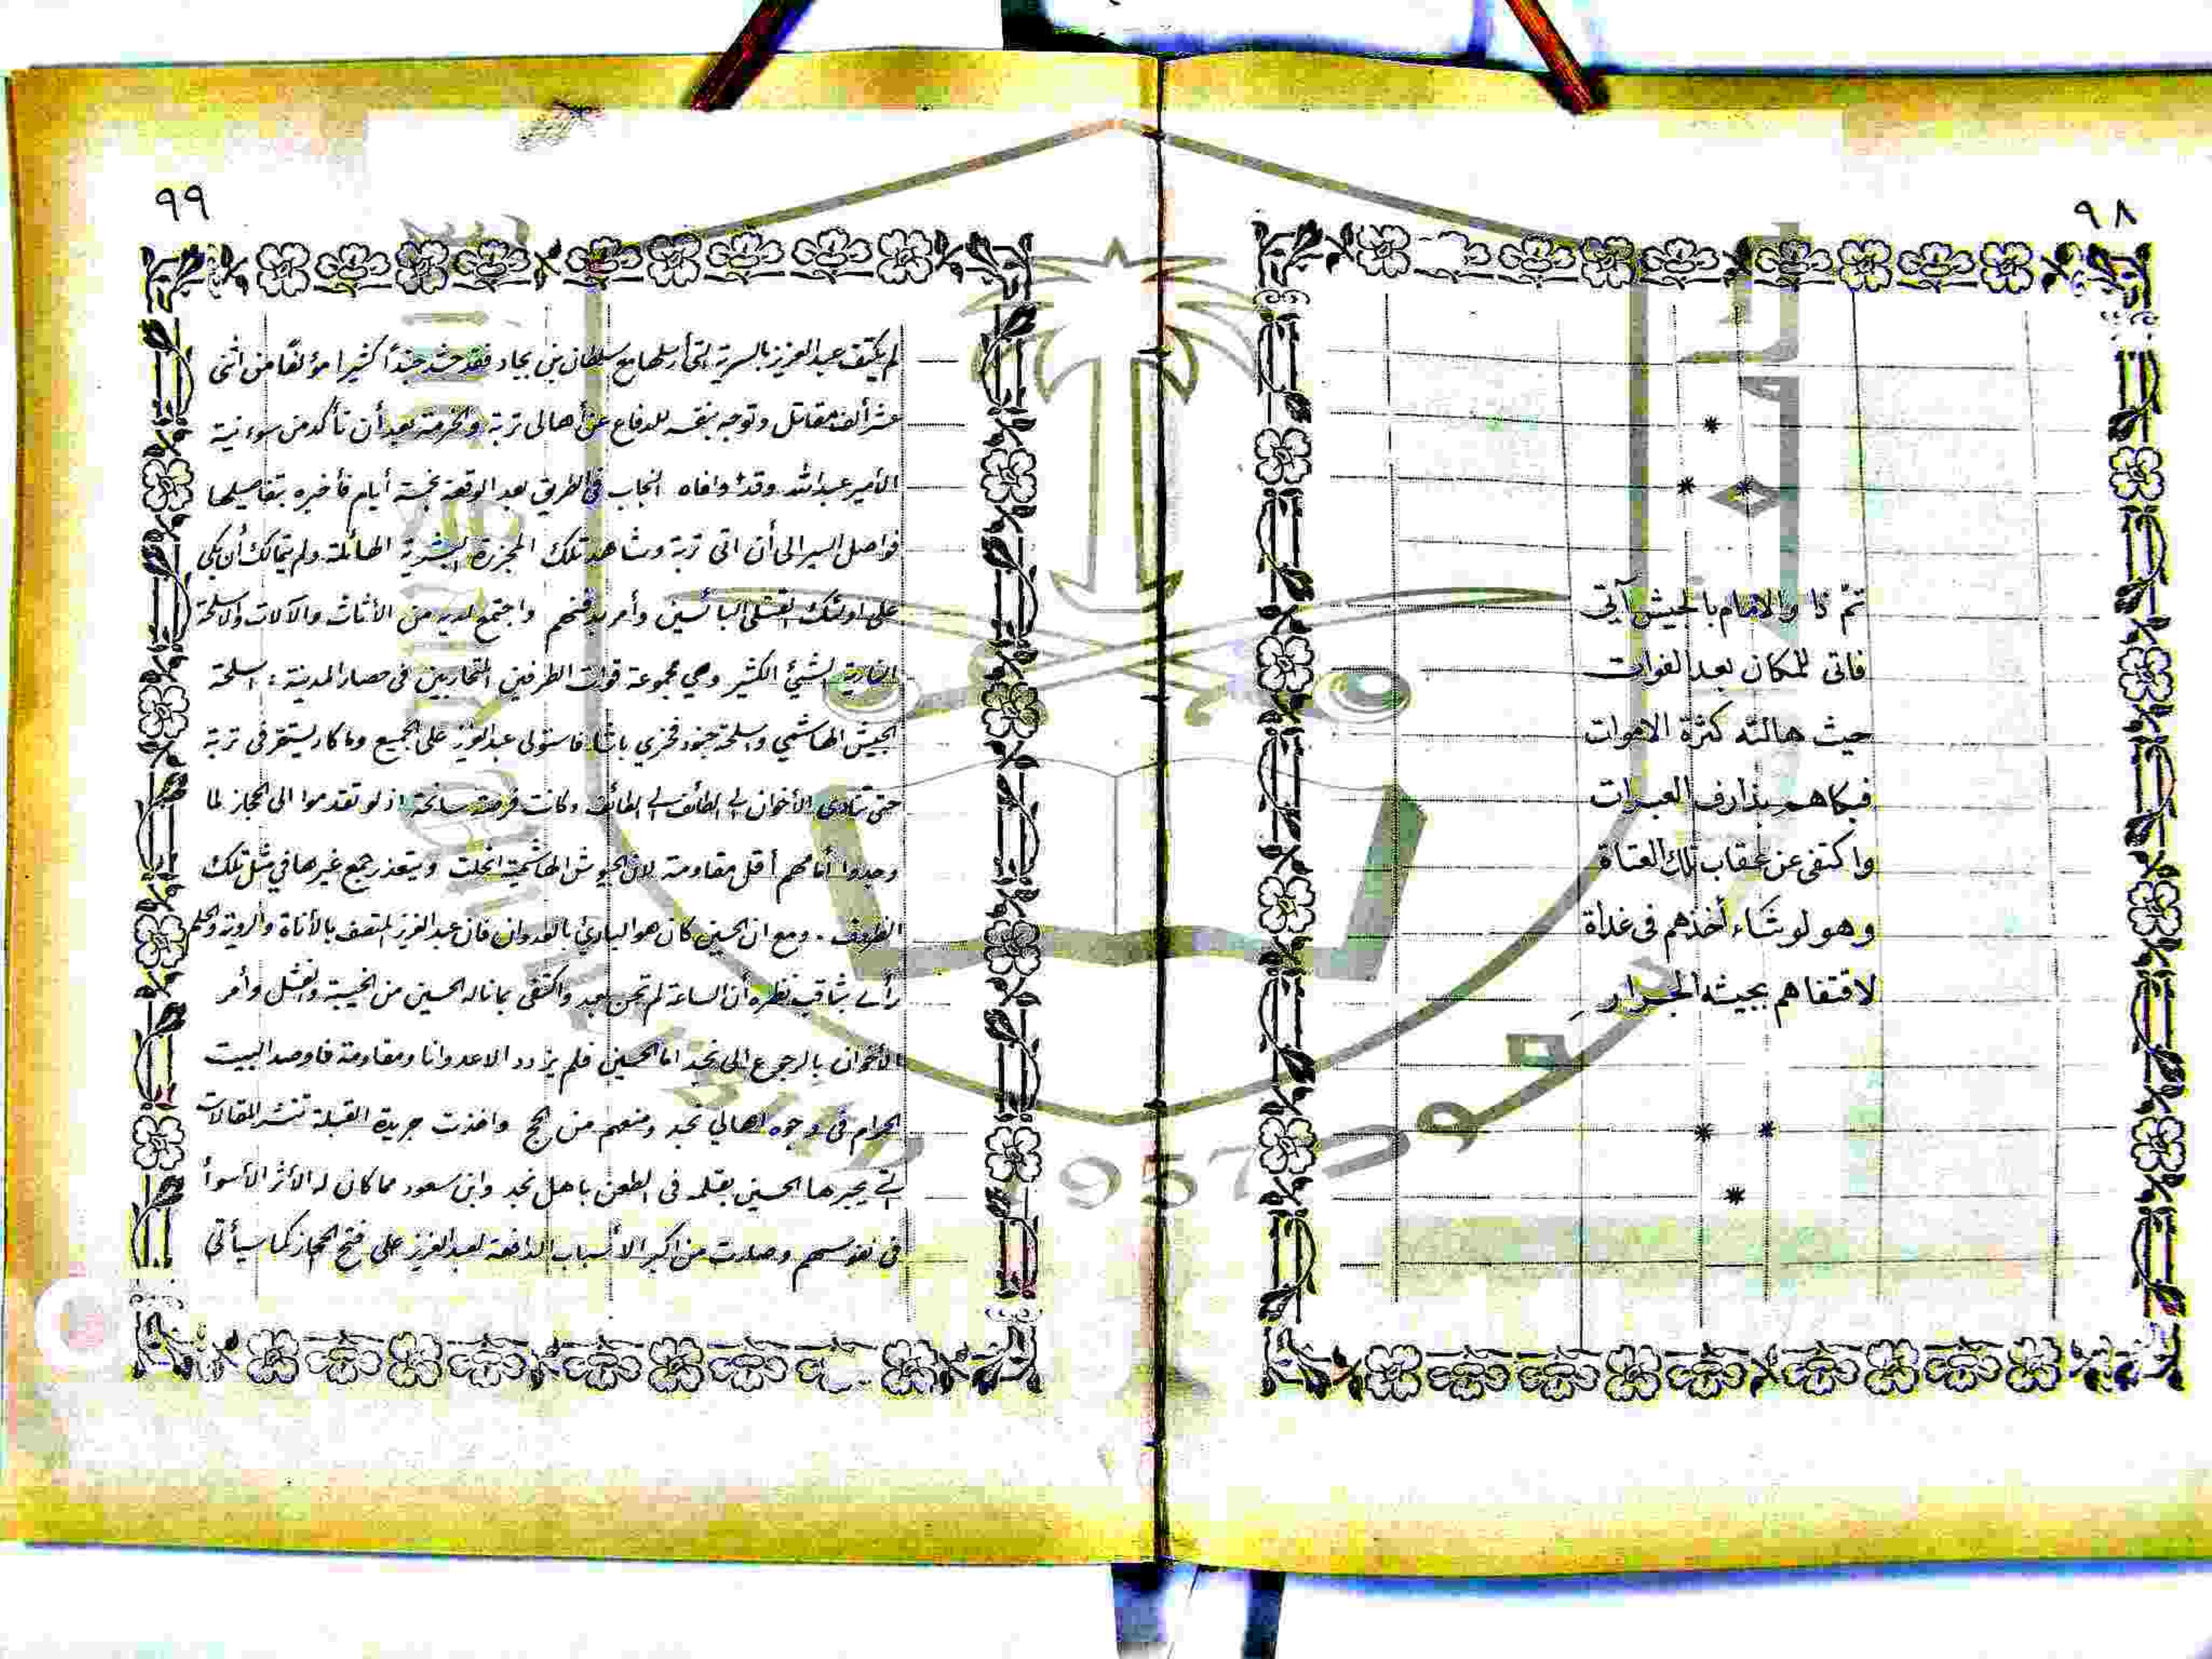 ٩٨
تمّ ذا والامام بالجيش آتي
فاتى للمكان بعد الفوات
حيث هالته كثرة الاموات
فبكاهم بذارف العبرات
واكتفى عن عقاب تلك العتاة
وهو لو شاء أخذهم فى غداة
لاقتفاهم بجيشه الجرارِ
٩٩
لم يكتف عبدالعزيز بالسرية التى أرسلها مع سلطان بن بجاد فقد حشد جنداً كثيرا مؤلفًا من اثنى
عشر ألف مقاتل وتوجه بنفسه للدفاع عن أهالى تربة والخرمة بعد أن تأكد من سوء نية
الأمير عبدالله وقد وافاه النجاب في الطريق بعد الوقعة بخمسة أيام فأخبره بتفاصيلها
فواصل السير الى أن اتى تربة وشاهد تلك المجزرة البشرية الهائلة ولم يتمالك أن بكى
على اولئك القتلى البائسين وأمر بدفنهم واجتمع لديه من الأثاث والآلات والاسلحة
النارية الشيئ الكثير وهي مجموعة قوات الطرفين المتحاربين فى حصار المدينة : اسلحة
الجيش الهاشمي واسلحة جنود فخري باشا فاستولى عبدالعزيز على الجميع وما كاد يستقر فى تربة
حتى تنادى الأخوان الى الطائف الى الطائف وكانت فرصة سانحة اذ لو تقدموا الى الحجاز لما
وجدوا أمامهم أقل مقاومة لان الجيوش الهاشمية انحلت ويتعذر جمع غيرها في مثل تلك
الظروف . ومع ان الحسين كان هو البادئ بالعدوان فان عبدالعزيز المتصف بالأناة والروية والحلم
رأى بثاقب نظره أن الساعة لم تحن بعد واكتفى بما ناله الحسين من الخيبة والفشل وأمر
الأخوان بالرجوع الى نجد اما الحسين فلم يزدد الا عدوانا ومقاومة فاوصد البيت
الحرام فى وجوه اهالي نجد ومنعهم من الحج واخذت جريدة القبلة تنشر المقالات
التى يحبرها الحسين بقلمه فى الطعن باهل نجد وابن سعود مما كان له الأثر الأسوأ
فى نفوسهم وصارت من اكبر الأسباب الدافعة لعبدالعزيز على فتح الحجاز كما سيأتى